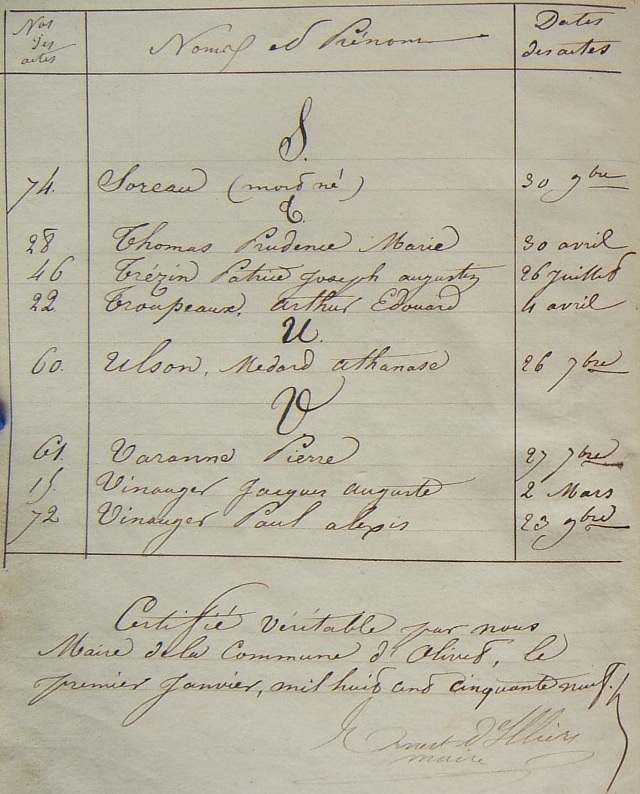 Nos des actes Noms et Prénoms Dates des actes
S.
74. Soreau (mort né) 30 9bre
T.
28 Thomas Prudence Marie 30 avril
46 Trézin Patrice Joseph augustin 26 Juillet
22 Troupeaux, arthur Edouard 4 avril
U.
60. Ulson, Medard athanase 26 7bre
V
61. Varanne Pierre 27 7bre
15. Vinauger Jacques auguste 2 Mars
72 Vinauger Paul alexis 23 9bre
Certifié véritable par nous
Maire de la Commune d'Olivet, le
premier Janvier, mil huit cent cinquante neuf.
Ernest d'Illiers
maire